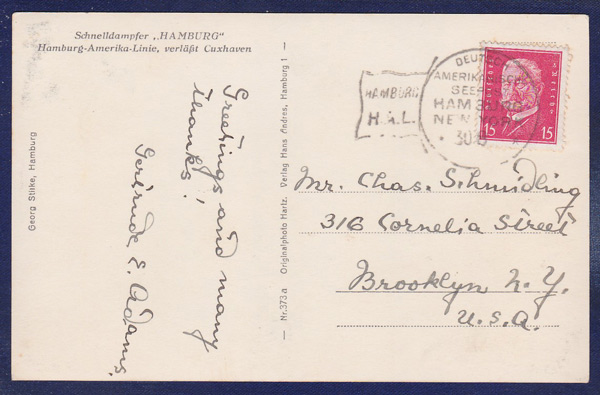 Schnelldampfer „HAMBURG"
Hamburg-Amerika-Linie, verläßt Cuxhaven
Georg Stilke, Hamburg
Greetings and many
thanks!
Gertrude E. Adams.
Nr. 373a Originalphoto Hartz. Verlag Hans Andres, Hamburg 1
HAMBURG
H.A.L.
DEUTSCH
AMERIKANISCHE
SEEPOST
HAMBURG
NEW YORK
15 15
Mr. Chas. Schmidling
316 Cornelia Street
Brooklyn N.Y.
U.S.A.